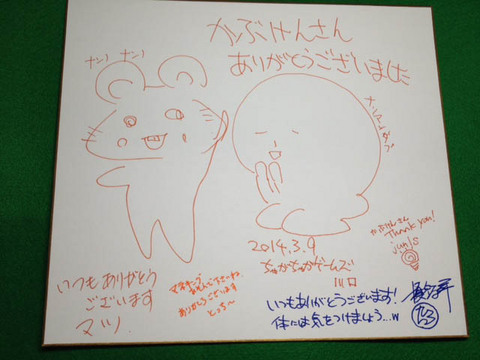 かぶけんさん
ありがとうございました
ナン！ ナン！
かぶけんさん
Thank you!
jun/s
2014.3.9
ちゅかちゅかゲームズ
川口
いつもありがとう
ございます
マツ
ありがとうございます
とっち〜
いつもありがとうございます!
体には気をつけましょう…w